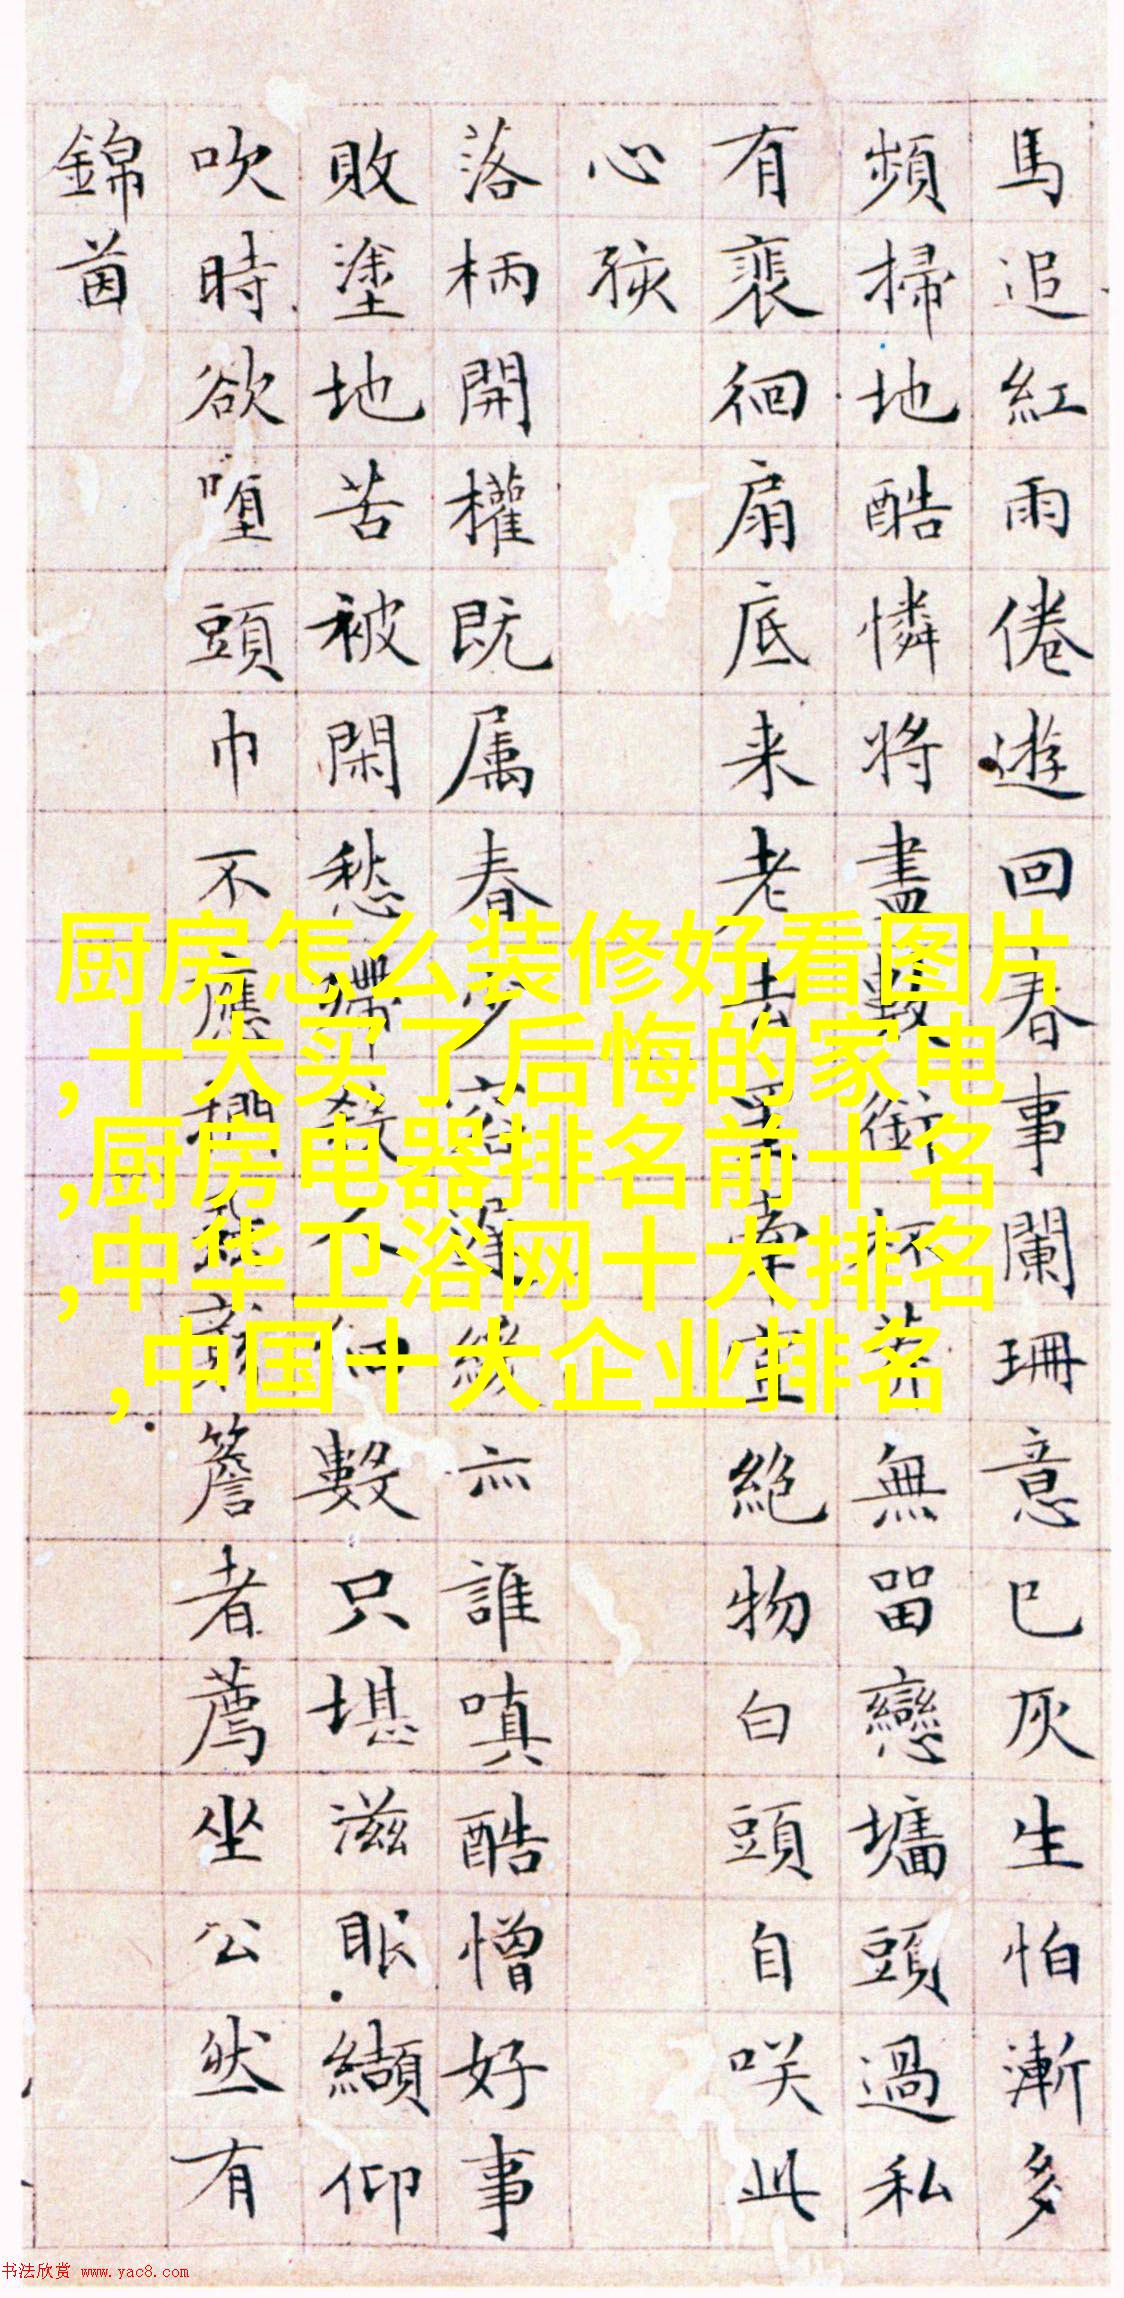 馬追紅雨倦遊回春事闌珊意已灰生怕漸多
頻掃地酷憐將盡數銜杯無留戀墻頭過私
有裴徊扇底来老去牽絶物白頭自咲此
心孩
落柄開權既属春少容遲緩亦誰嗔酷憎好事
敗塗地苦被閑愁殢殺人細數只堪滋眼纈仰
吹時欲堕頭巾不應攔簷者薦坐公然有
錦茵
厨房怎么装修好看图片
,十大买了后悔的家电
,厨房电器排名前十名
,中华卫浴网十大排名
,中国十大企业排名
书法欣赏 www.yac8.com